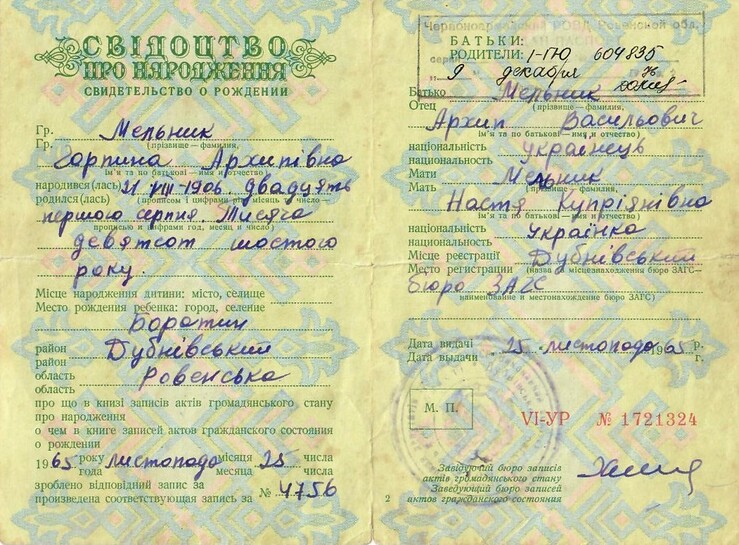 СВІДОЦТВО
ПРО НАРОДЖЕННЯ
СВИДЕТЕЛЬСТВО О РОЖДЕНИИ
Гр. Мельник
Гр. (прізвище — фамилия,
Гарпина Архипівна
ім'я та по батькові — имя и отчество)
народився (лась) 21 VIII - 1906. двадцять
родился (лась) (прописом і цифрами рік, місяць і число —
першого серпня. Тисяча
прописью и цифрами год, месяц и число)
девятсот шостого
року.
Місце народження дитини: місто, селище
Место рождения ребенка: город, селение
Боратин
район Дубнівський
район
область Ровенська
область
про що в книзі записів актів громадянського стану
про народження
о чем в книге записей актов гражданского состояния
о рождении
1965 року листопада місяця 25 числа
года месяца числа
зроблено відповідний запис за № 4756
произведена соответствующая запись за
Червоноармейский РОВД Ровенской обл.
БАТЬКИ:
РОДИТЕЛИ: I-ГЮ 604835
9 декабря 76
Батько Мельник
Отец (прізвище — фамилия,
Архип Васильович
ім'я та по батькові — имя и отчество)
національність українець
национальность
Мати Мельник
Мать (прізвище — фамилия,
Настя Купріянівна
ім'я та по батькові — имя и отчество)
національність Українка
национальность
Місце реєстрації Дубнівський
Место регистрации (назва і місцезнаходження бюро ЗАГС—
бюро ЗАГС
наименование и местонахождение бюро ЗАГС)
Дата видачі 25 листопада 1965 р.
Дата выдачи г.
М. П.
VI-УР № 1721324
Завідуючий бюро записів
актів громадянського стану
Заведующий бюро записей
актов гражданского состояния
2